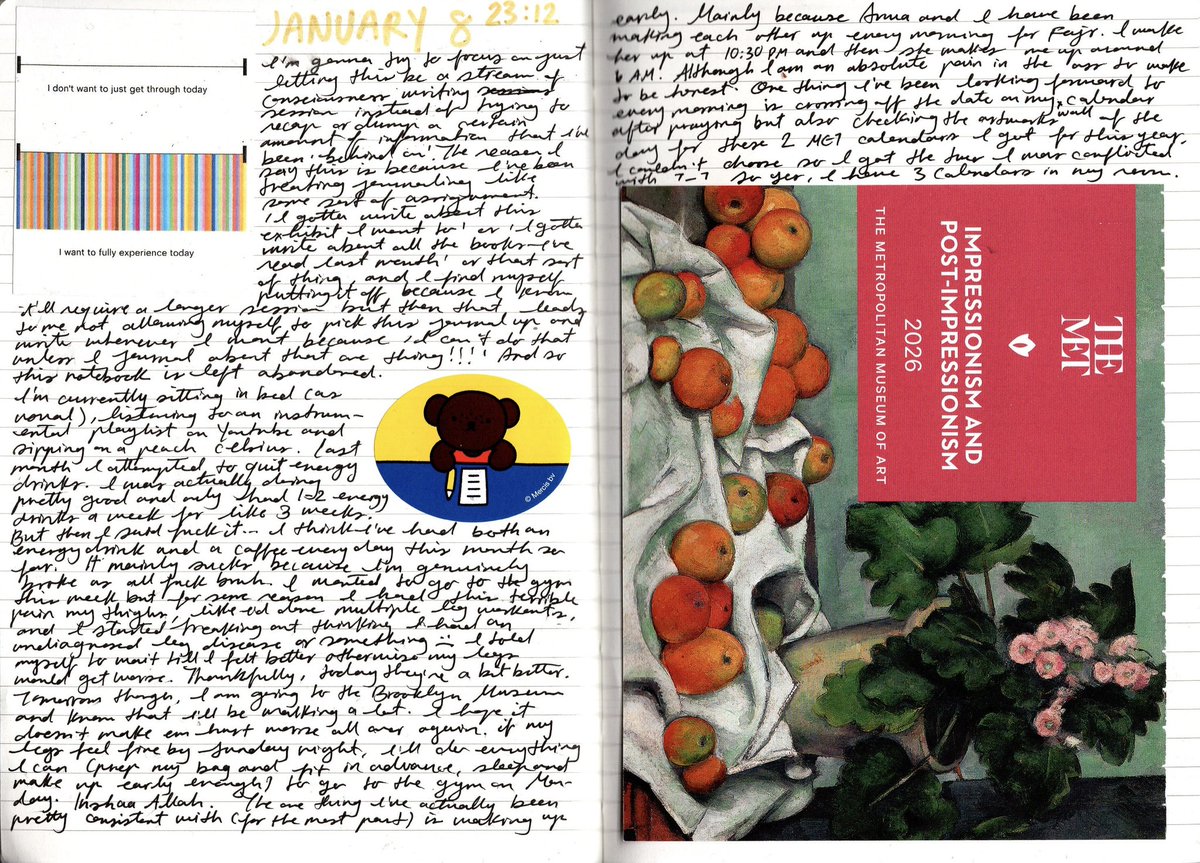 I don't want to just get through today
I want to fully experience today
JANUARY 8 23:12
I'm gonna try to focus on just
letting this be a stream of
consciousness writing
session instead of trying to
recap or dump a certain
amount of information that I've
been 'behind on'. The reason I
say this is because I've been
treating journaling like
some sort of assignment.
'I gotta write about this
exhibit I went to' or 'I gotta
write about all the books I've
read last month' or that sort
of thing and I find myself
putting it off because I know
it'll require a longer session but then that leads
to me not allowing myself to pick this journal up and
write whenever I want because 'I can't do that
unless I journal about that one thing'!!!! And so
this notebook is left abandoned.
I'm currently sitting in bed (as
usual), listening to an instrum-
ental playlist on Youtube and
sipping on a peach celsius. Last
month I attempted to quit energy
drinks. I was actually doing
pretty good and only had 1-2 energy
drinks a week for like 3 weeks.
But then I said fuck it... I think I've had both an
energy drink and a coffee every day this month so
far. It mainly sucks because I'm genuinely
broke as all fuck bruh. I wanted to go to the gym
this week but for some reason I had this terrible
pain my thighs, like I'd done multiple leg workouts,
and I started freaking out thinking I had an
undiagnosed leg disease or something I told
myself to wait till I felt better otherwise my legs
would get worse. Thankfully, today they're a bit better.
Tomorrow though, I am going to the Brooklyn Museum
and know that i'll be walking a lot. I hope it
doesn't make em hurt worse all over again. if my
legs feel fine by Sunday night, I'll do everything
I can (prep my bag and fit in advance, sleep and
wake up early enough) to go to the gym on Mon-
day. Inshaa Allah. The one thing I've actually been
pretty consistent with (for the most part) is waking up
© Mercis bv
early. Mainly because Anna and I have been
waking each other up every morning for Fajr. I wake
her up at 10:30 PM and then she wakes me up around
6 AM. Although I am an absolute pain in the ass to wake
to be honest. One thing I've been looking forward to
every morning is crossing off the date on my wall calendar
after praying but also checking the artworks of the
day for these 2 MET calendars I got for this year.
I couldn't choose so I got the two I was conflicted
with T-T So yes, I have 3 calendars in my room.
THE
MET
IMPRESSIONISM AND
POST-IMPRESSIONISM
2026
THE METROPOLITAN MUSEUM OF ART